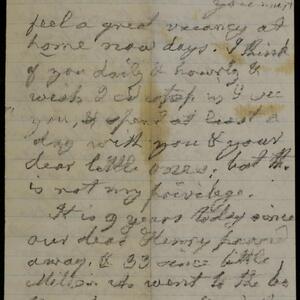 you must
feel a great vacancy at
home now days. I think
of you daily & hourly &
wish I cd step in & see
you, & spend at least a
day with you & your
dear little ones; but this
is not my privilege.
It is 9 years today since
our dear Henry passed
away, & 33 since little
went to the